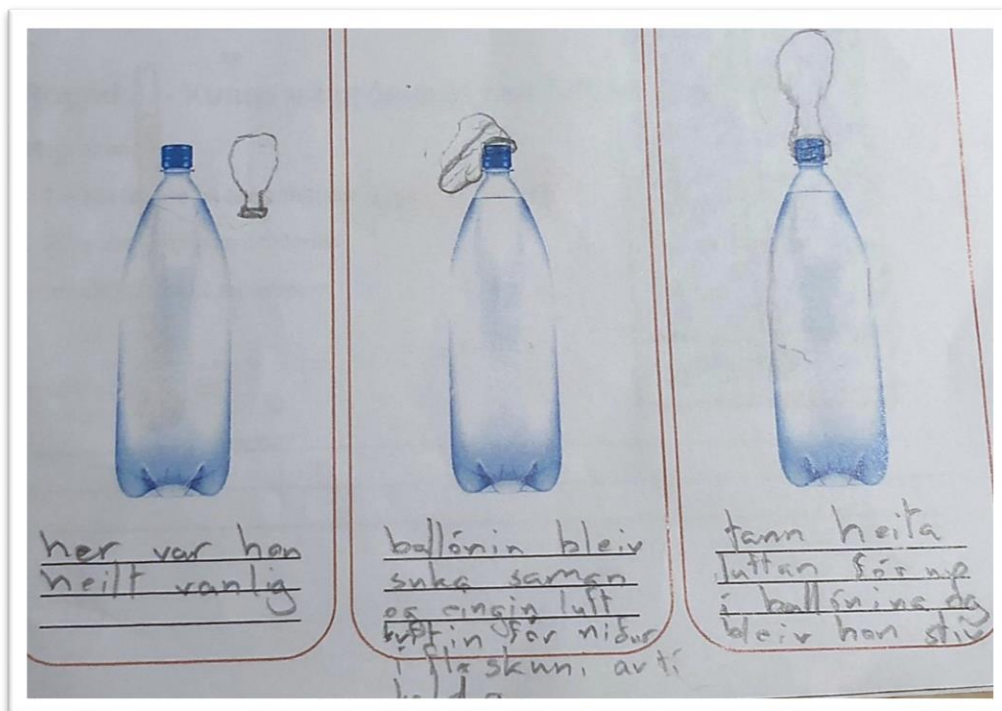 her var hon
heilt vanlig
ballónin bleiv
suka saman
og eingin luft
luftin fór niður
í fløskuni av tí
tann heita
luftan fór up
í ballónina og
bleiv hon stív